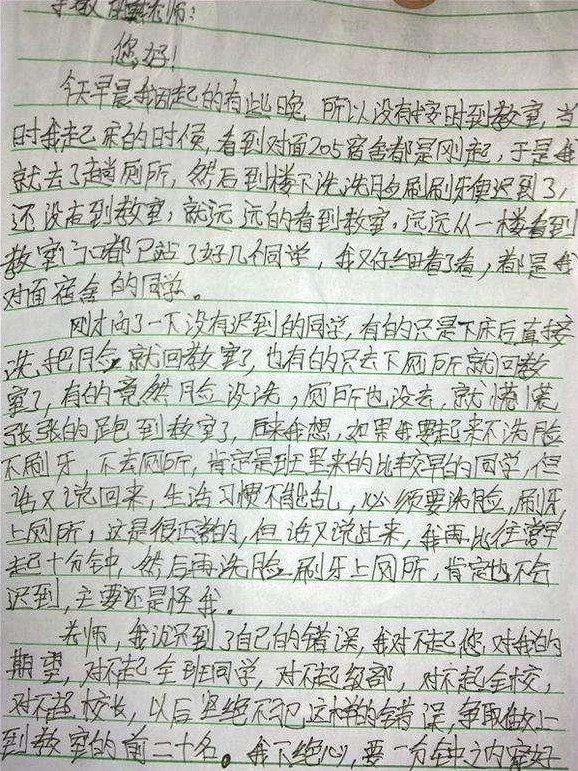 尊敬的老师:
您好!
今天早晨我因起的有些晚,所以没有按时到教室,当
时我起床的时候,看到对面205宿舍都是刚起,于是我
就去了趟厕所,然后到楼下洗洗脸刷刷牙便迟到了,
还没有到教室,就远远的看到教室,远远从一楼看到
教室门口都已站了好几个同学,我又仔细看了看,都是我
对面宿舍的同学。
刚才问了一下没有迟到的同学,有的只是下床后直接
洗把脸就回教室了,也有的只去下厕所就回教
室了,有的竟然脸没洗,厕所也没去,就慌慌
张张的跑到教室了,后来我想,如果我要起来不洗脸
不刷牙,不去厕所,肯定是班里来的比较早的同学,但
话又说回来,生活习惯不能乱,必须要洗脸,刷牙,
上厕所,这是很正常的,但话又说过来,我再比往常早
起十分钟,然后再洗脸刷牙上厕所,肯定也不会
迟到,主要还是怪我。
老师,我认识到了自己的错误,我对不起您对我的
期望,对不起全班同学,对不起级部,对不起全校,
对不起校长,以后坚绝不犯这样的错误,争取做上
到教室的前二十名。我下绝心,要一分钟之内穿好